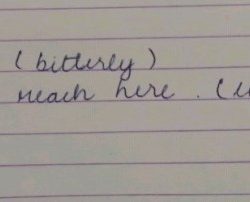 (bitterly)
reach here. (